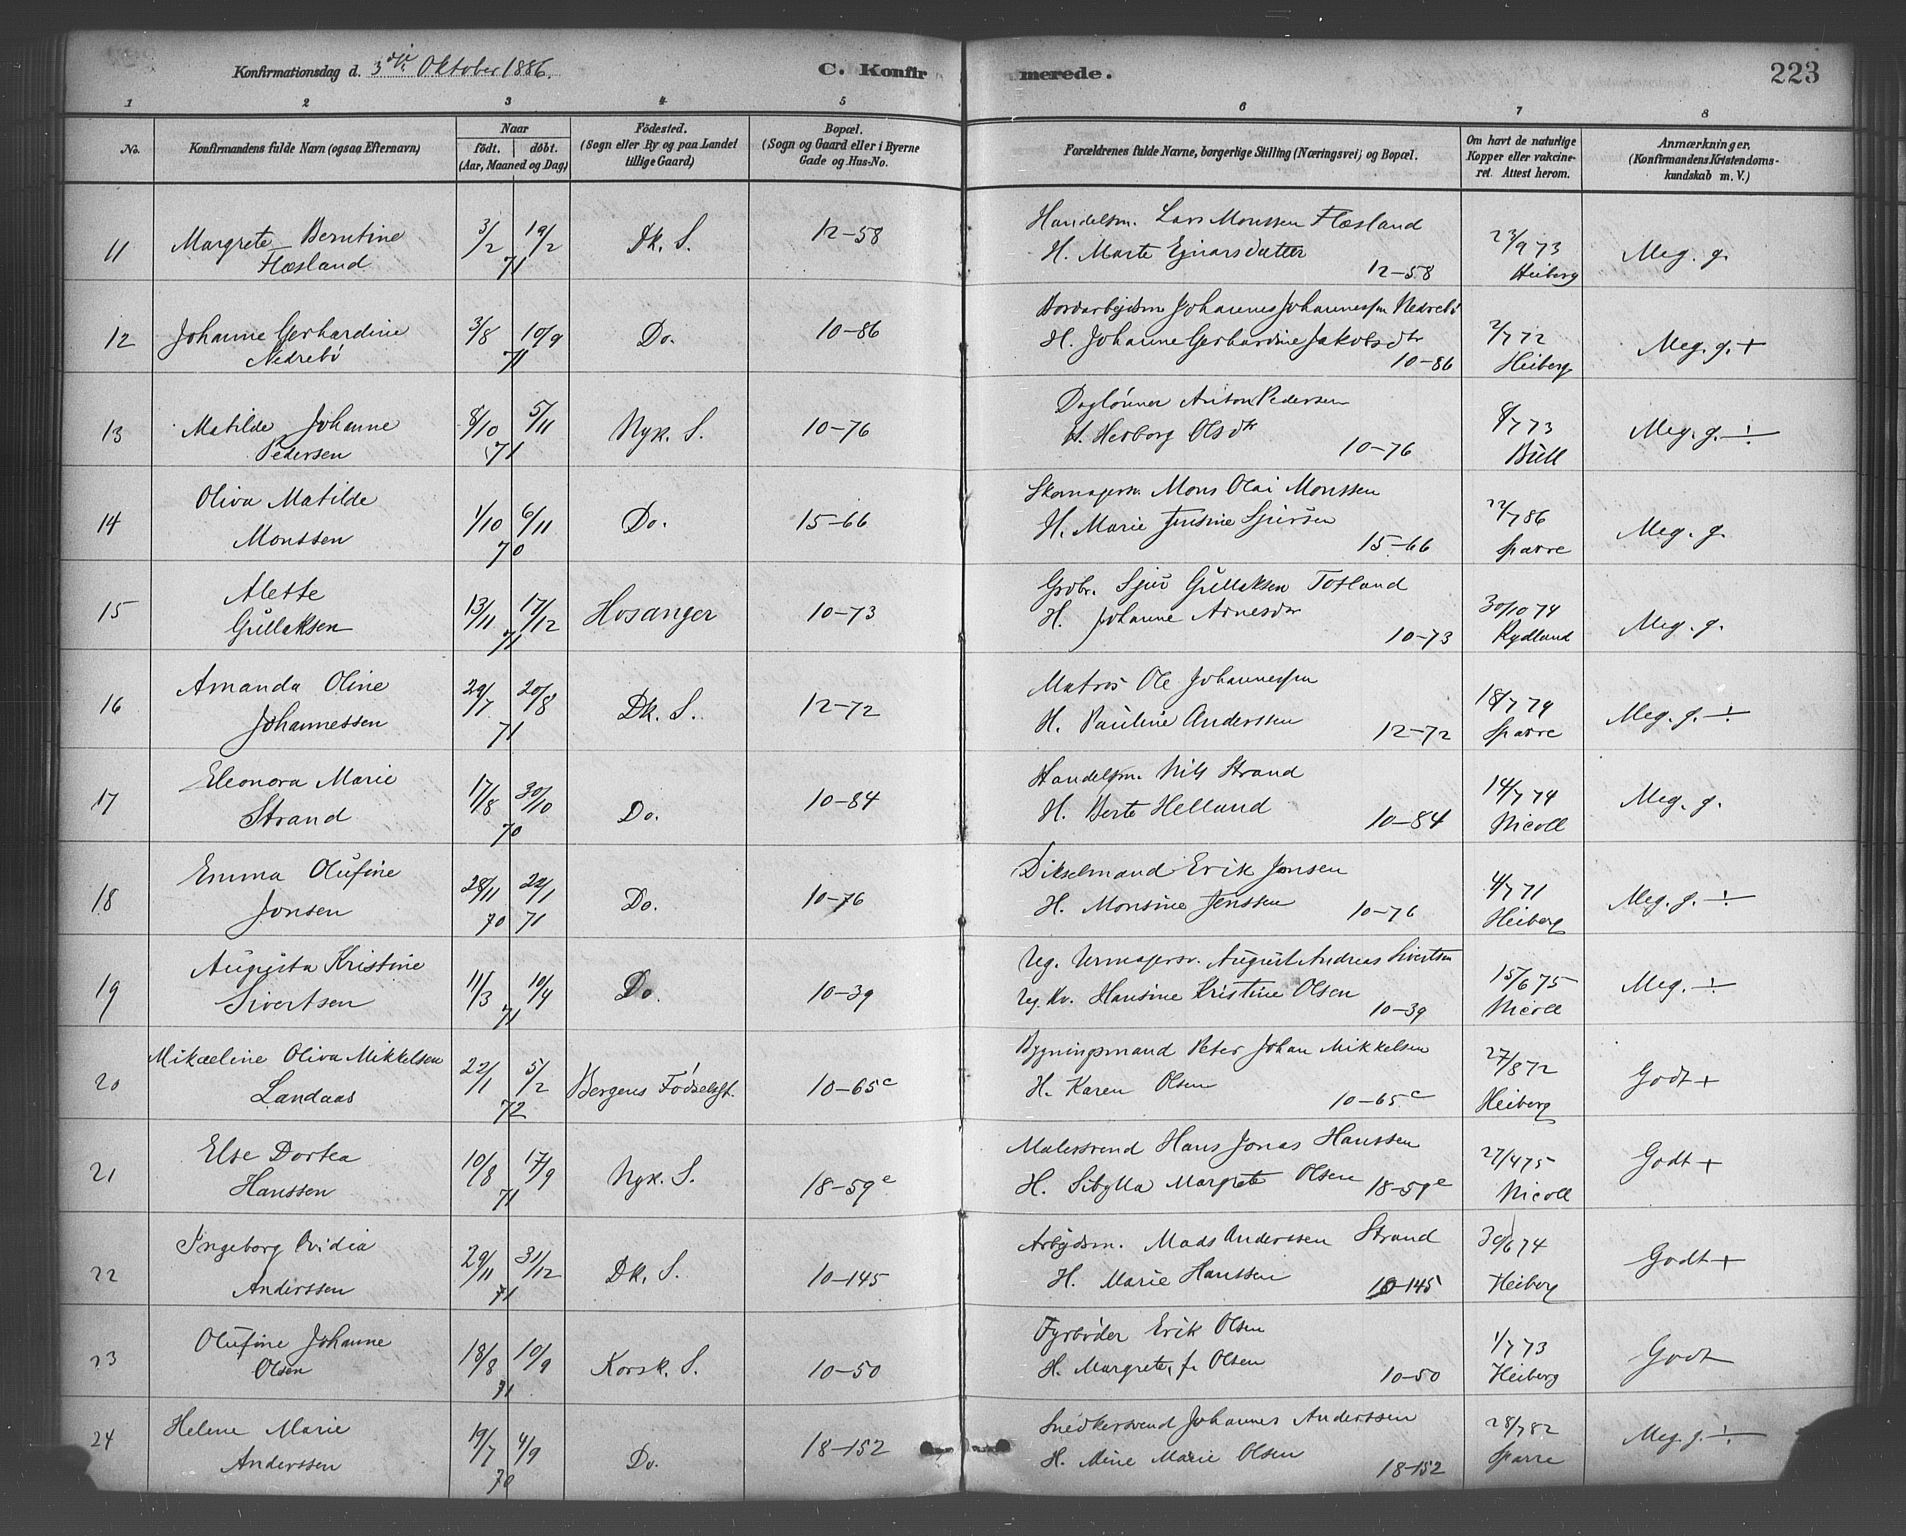 Konfirmationsdag d. 3die Oktober 1886. C. Konfirmerede. 223
1 2 3 4 5 6 7 8
No. Konfirmandens fulde Navn (ogsaa Efternavn) Naar født. døbt. (Aar, Maaned og Dag) Födested. (Sogn eller By og paa Landet tillige Gaard) Bopæl. (Sogn og Gaard eller i Byerne Gade og Hus-No. Forældrenes fulde Navne, borgerlige Stilling (Næringsvei) og Bopæl. Om havt de naturlige Kopper eller vakcineret. Attest herom. Anmærkninger. (Konfirmandens Kristendomskundskab m. V.)
11 Margrete Berntine Flæsland 3/2 19/2 71 Dk. S. 12-58 Handelsm. Lars Monssen Flæsland
H. Marte Ejnarsdatter 12-58 23/9 73 Heiberg Meg. g.
12 Johanne Gerhardine Nedrebö 3/8 10/9 71 Do. 10-86 Bordarbejdsm Johannes Johannessen Nedrebö
H. Johanne Gerhardine Jakobsdtr 10-86 2/7 72 Heiberg Meg. g. +
13 Matilde Johanne Pedersen 8/10 5/11 71 Nyk. S. 10-76 Daglönner Anton Pedersen
H. Herborg Olsdtr 10-76 8/7 73 Büll Meg. g. ÷
14 Oliva Matilde Monssen 1/10 6/11 70 Do. 15-66 Skomagersv. Mons Olai Monssen
H. Marie Jensine Sjursen 15-66 22/7 86 Sparre Meg. g.
15 Alette Gullaksen 13/11 17/12 71 Hosanger 10-73 Grdbr. Sjur Gullaksen Totland
H. Johanne Arnesdtr 10-73 30/10 74 Rydland Meg. g.
16 Amanda Oline Johannessen 29/7 20/8 71 Dk. S. 12-72 Matros Ole Johannessen
H. Pauline Anderssen 12-72 18/7 74 Sparre Meg. g. ÷
17 Eleonora Marie Strand 17/8 30/10 70 Do. 10-84 Handelsm. Nils Strand
H. Berte Helland 10-84 14/7 74 Nicoll Meg. g.
18 Emma Olufine Jonsen 28/11 70 22/1 71 Do. 10-76 Dikselmand Erik Jonsen
H. Monsine Jenssen 10-76 4/7 71 Heiberg Meg. g. ÷
19 Augusta Kristine Sivertsen 11/3 10/4 71 Do. 10-39 Ug. Urmagersv. August Andreas Sivertsen
Ug. Kv. Hansine Kristine Olsen 10-39 15/6 75 Nicoll Meg. ÷
20 Mikaeline Oliva Mikkelsen Landaas 22/1 5/2 72 Bergens Fødselsst. 10-65c Bygningsmand Peter Johan Mikkelsen
H. Karen Olsen 10-65c 27/8 72 Heiberg Godt +
21 Else Dortea Hanssen 10/8 17/9 71 Nyk. S. 18-59e Malersvend Hans Jonas Hanssen
H. Sibylla Margrete Olsen 18-59e 27/4 75 Nicoll Godt +
22 Ingeborg Ovidia Anderssen 29/11 31/12 71 Dk. S. 10-145 Arbejdsm. Mads Anderssen Strand
H. Marie Hanssen 10-145 30/6 74 Heiberg Godt +
23 Olufine Johanne Olsen 18/8 10/9 71 Korsk. S. 10-50 Fyrböder Erik Olsen
H. Margrete, f. Olsen 10-50 1/7 73 Heiberg Godt
24 Helene Marie Anderssen 19/7 4/9 70 Do. 18-152 Snedkersvend Johannes Anderssen
H. Aline Marie Olsen 18-152 28/7 82 Sparre Meg. g. ÷